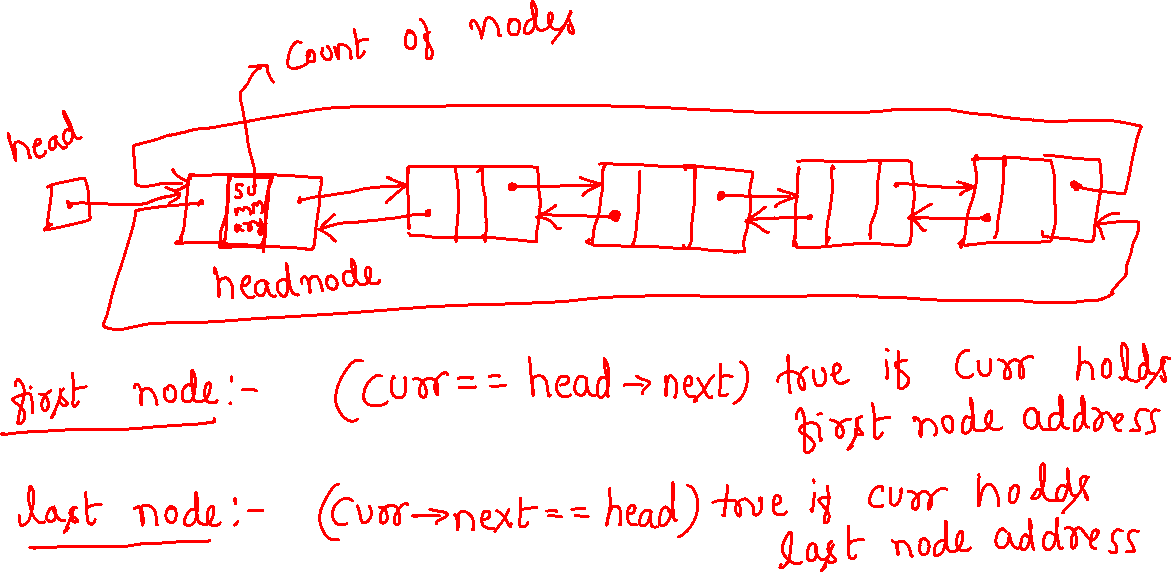 Count of nodes
head
su
mm
ary
headnode
first node:- (curr == head→next) true if curr holds
first node address
last node:- (curr→next == head) true if curr holds
last node address